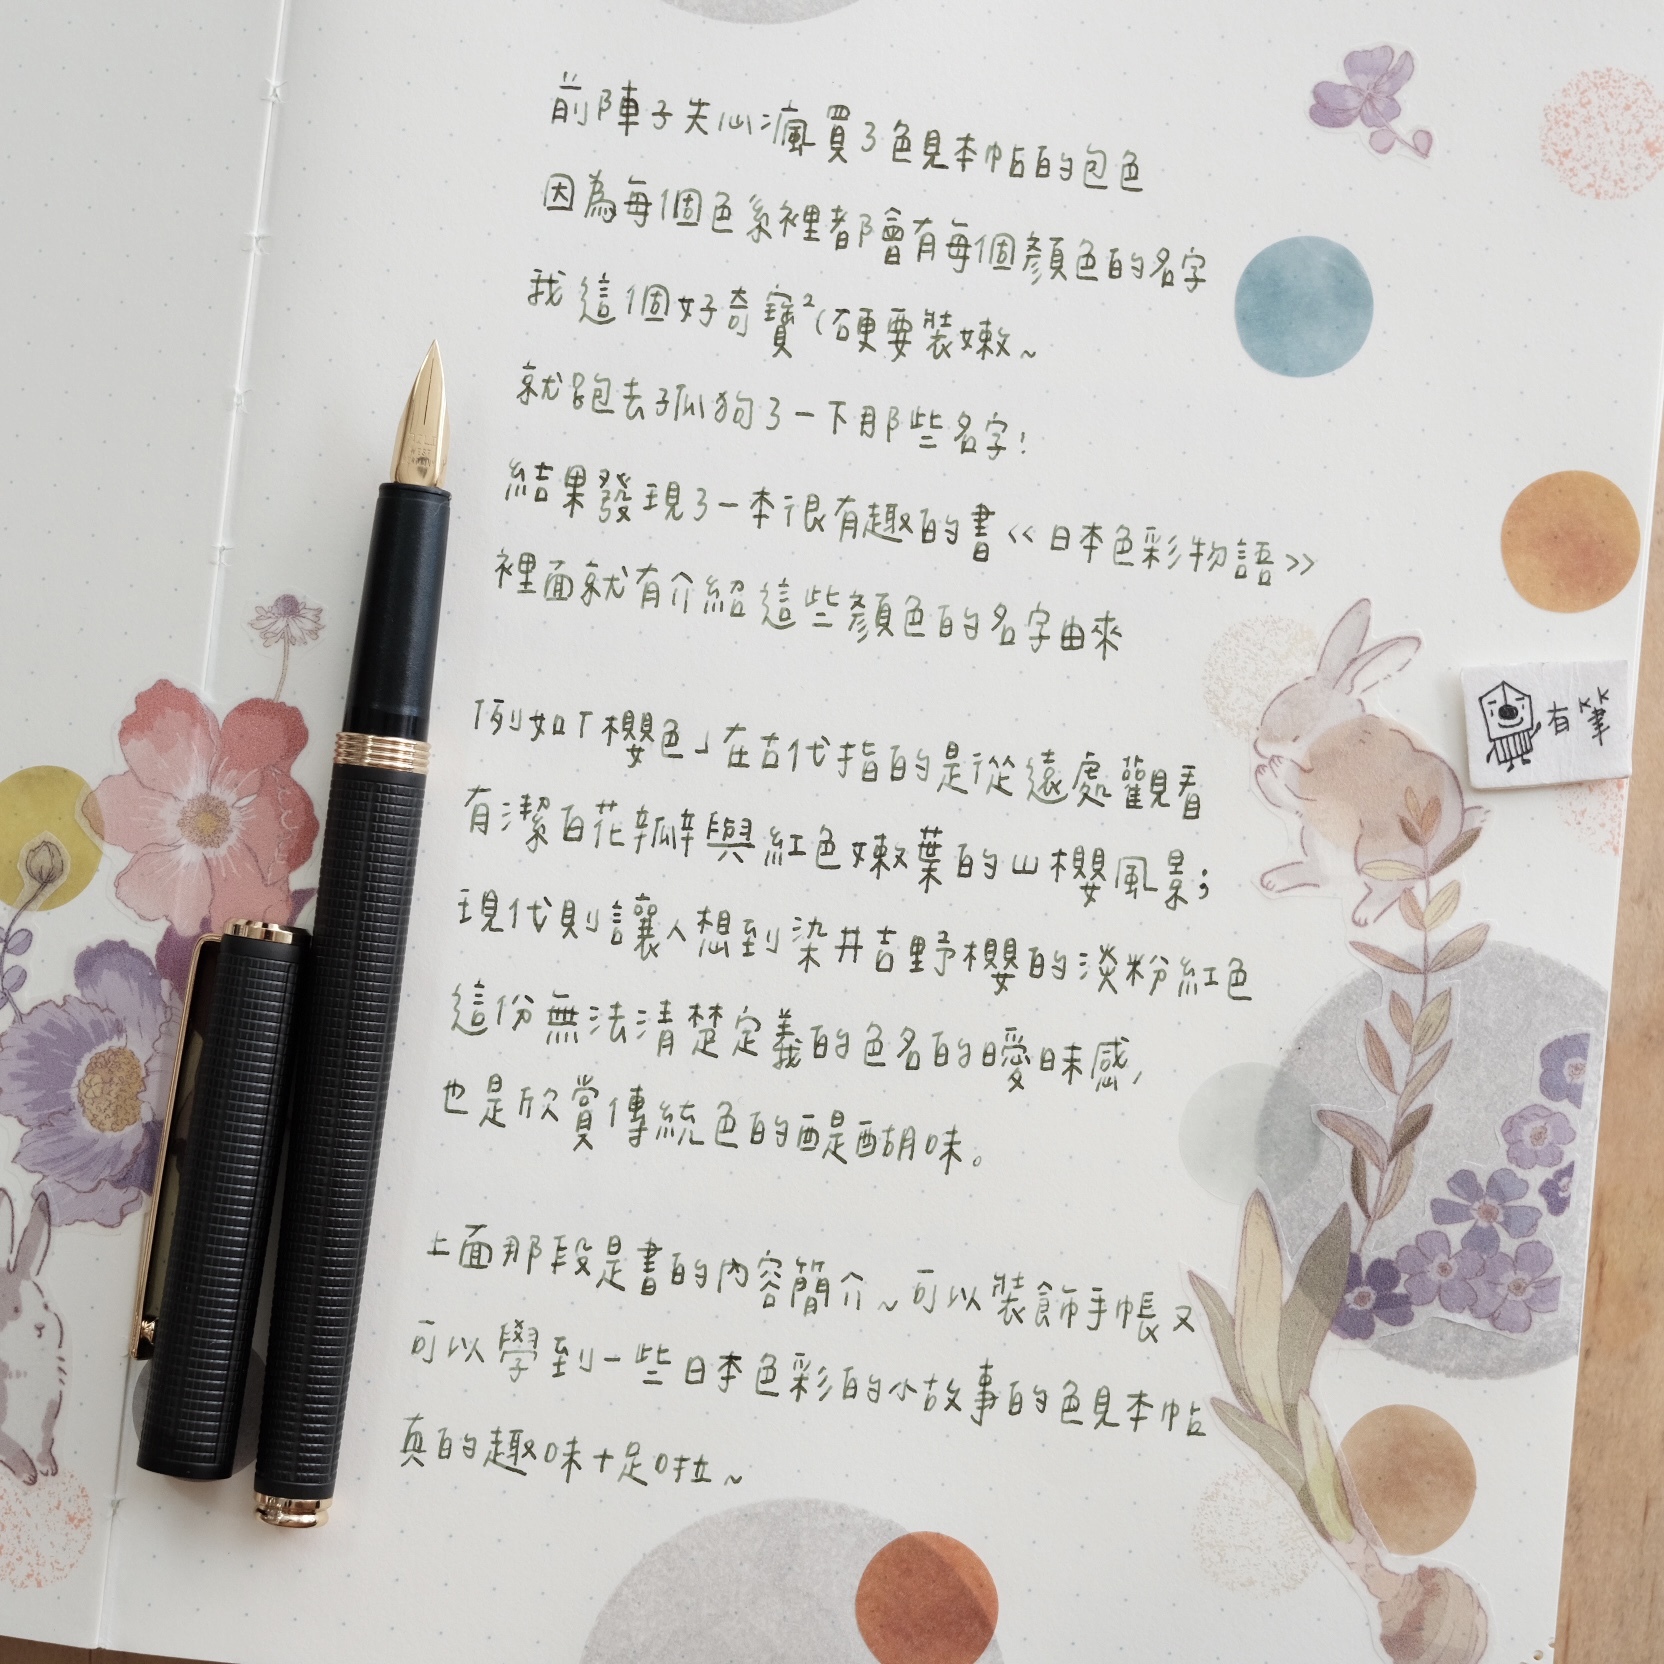 前陣子失心瘋買了色見本帖的包色
因為每個色系裡都會有每個顏色的名字
我這個好奇寶²(硬要裝嫩~
就跑去孤狗了一下那些名字!
結果發現了一本很有趣的書《日本色彩物語》
裡面就有介紹這些顏色的名字由來
「例如「櫻色」在古代指的是從遠處觀看
有潔白花瓣與紅色嫩葉的山櫻風景;
現代則讓人想到染井吉野櫻的淡粉紅色
這份無法清楚定義的色名的曖昧感,
也是欣賞傳統色的醍醐味。
上面那段是書的內容簡介~可以裝飾手帳又
可以學到一些日本色彩的小故事的色見本帖
真的趣味十足啦~
有筆